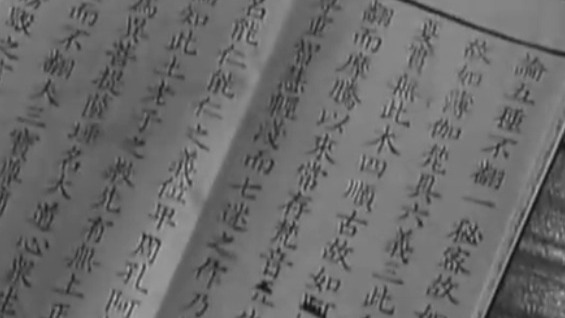 論五種不翻一秘密故如
故如薄伽梵具六義三此
夏實無此木四順古故如阿
翻而摩騰以來常存梵音五
重智慧輕淺而七迷之作乃
名能仁能仁之義位卑周孔阿
知此土老子之教先有無上正
為異菩提薩埵名大道心眾生
而不翻夫三寶尊